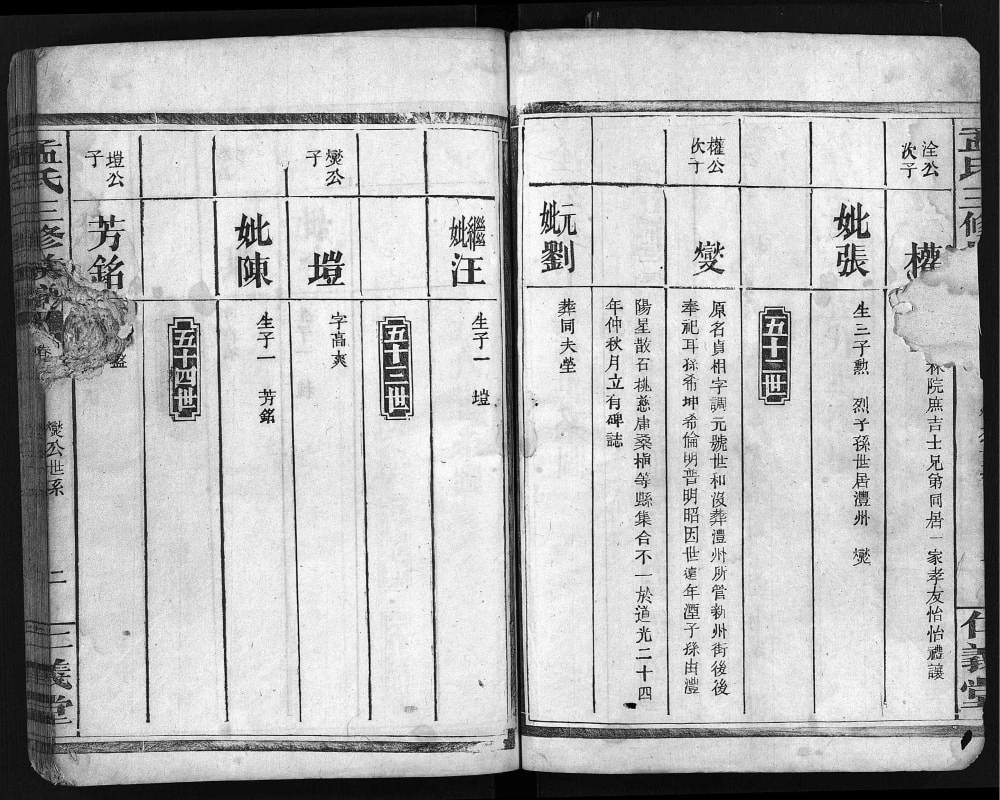 孟氏三修
仁義堂
淦公
次子
權
林院庶吉士兄第同居一家孝友怡怡禮讓
妣張
生三子勲 烈子孫世居澧州 爕
五十二世
權公
次子
爕
原名貞相字調元號世和沒葬澧州所管新州街後後
奉祀耳孫希坤希倫明普明昭因世遠年湮子孫由澧
陽星散石桃慈庸桑植等縣集合不一於道光二十四
年仲秋月立有碑誌
元妣劉
葬同夫塋
繼妣汪
生子一 塏
五十三世
爕公
子
塏
字高爽
妣陳
生子一 芳銘
五十四世
塏公
子
芳銘
孟氏三修
卷
爕公世系
二
仁義堂